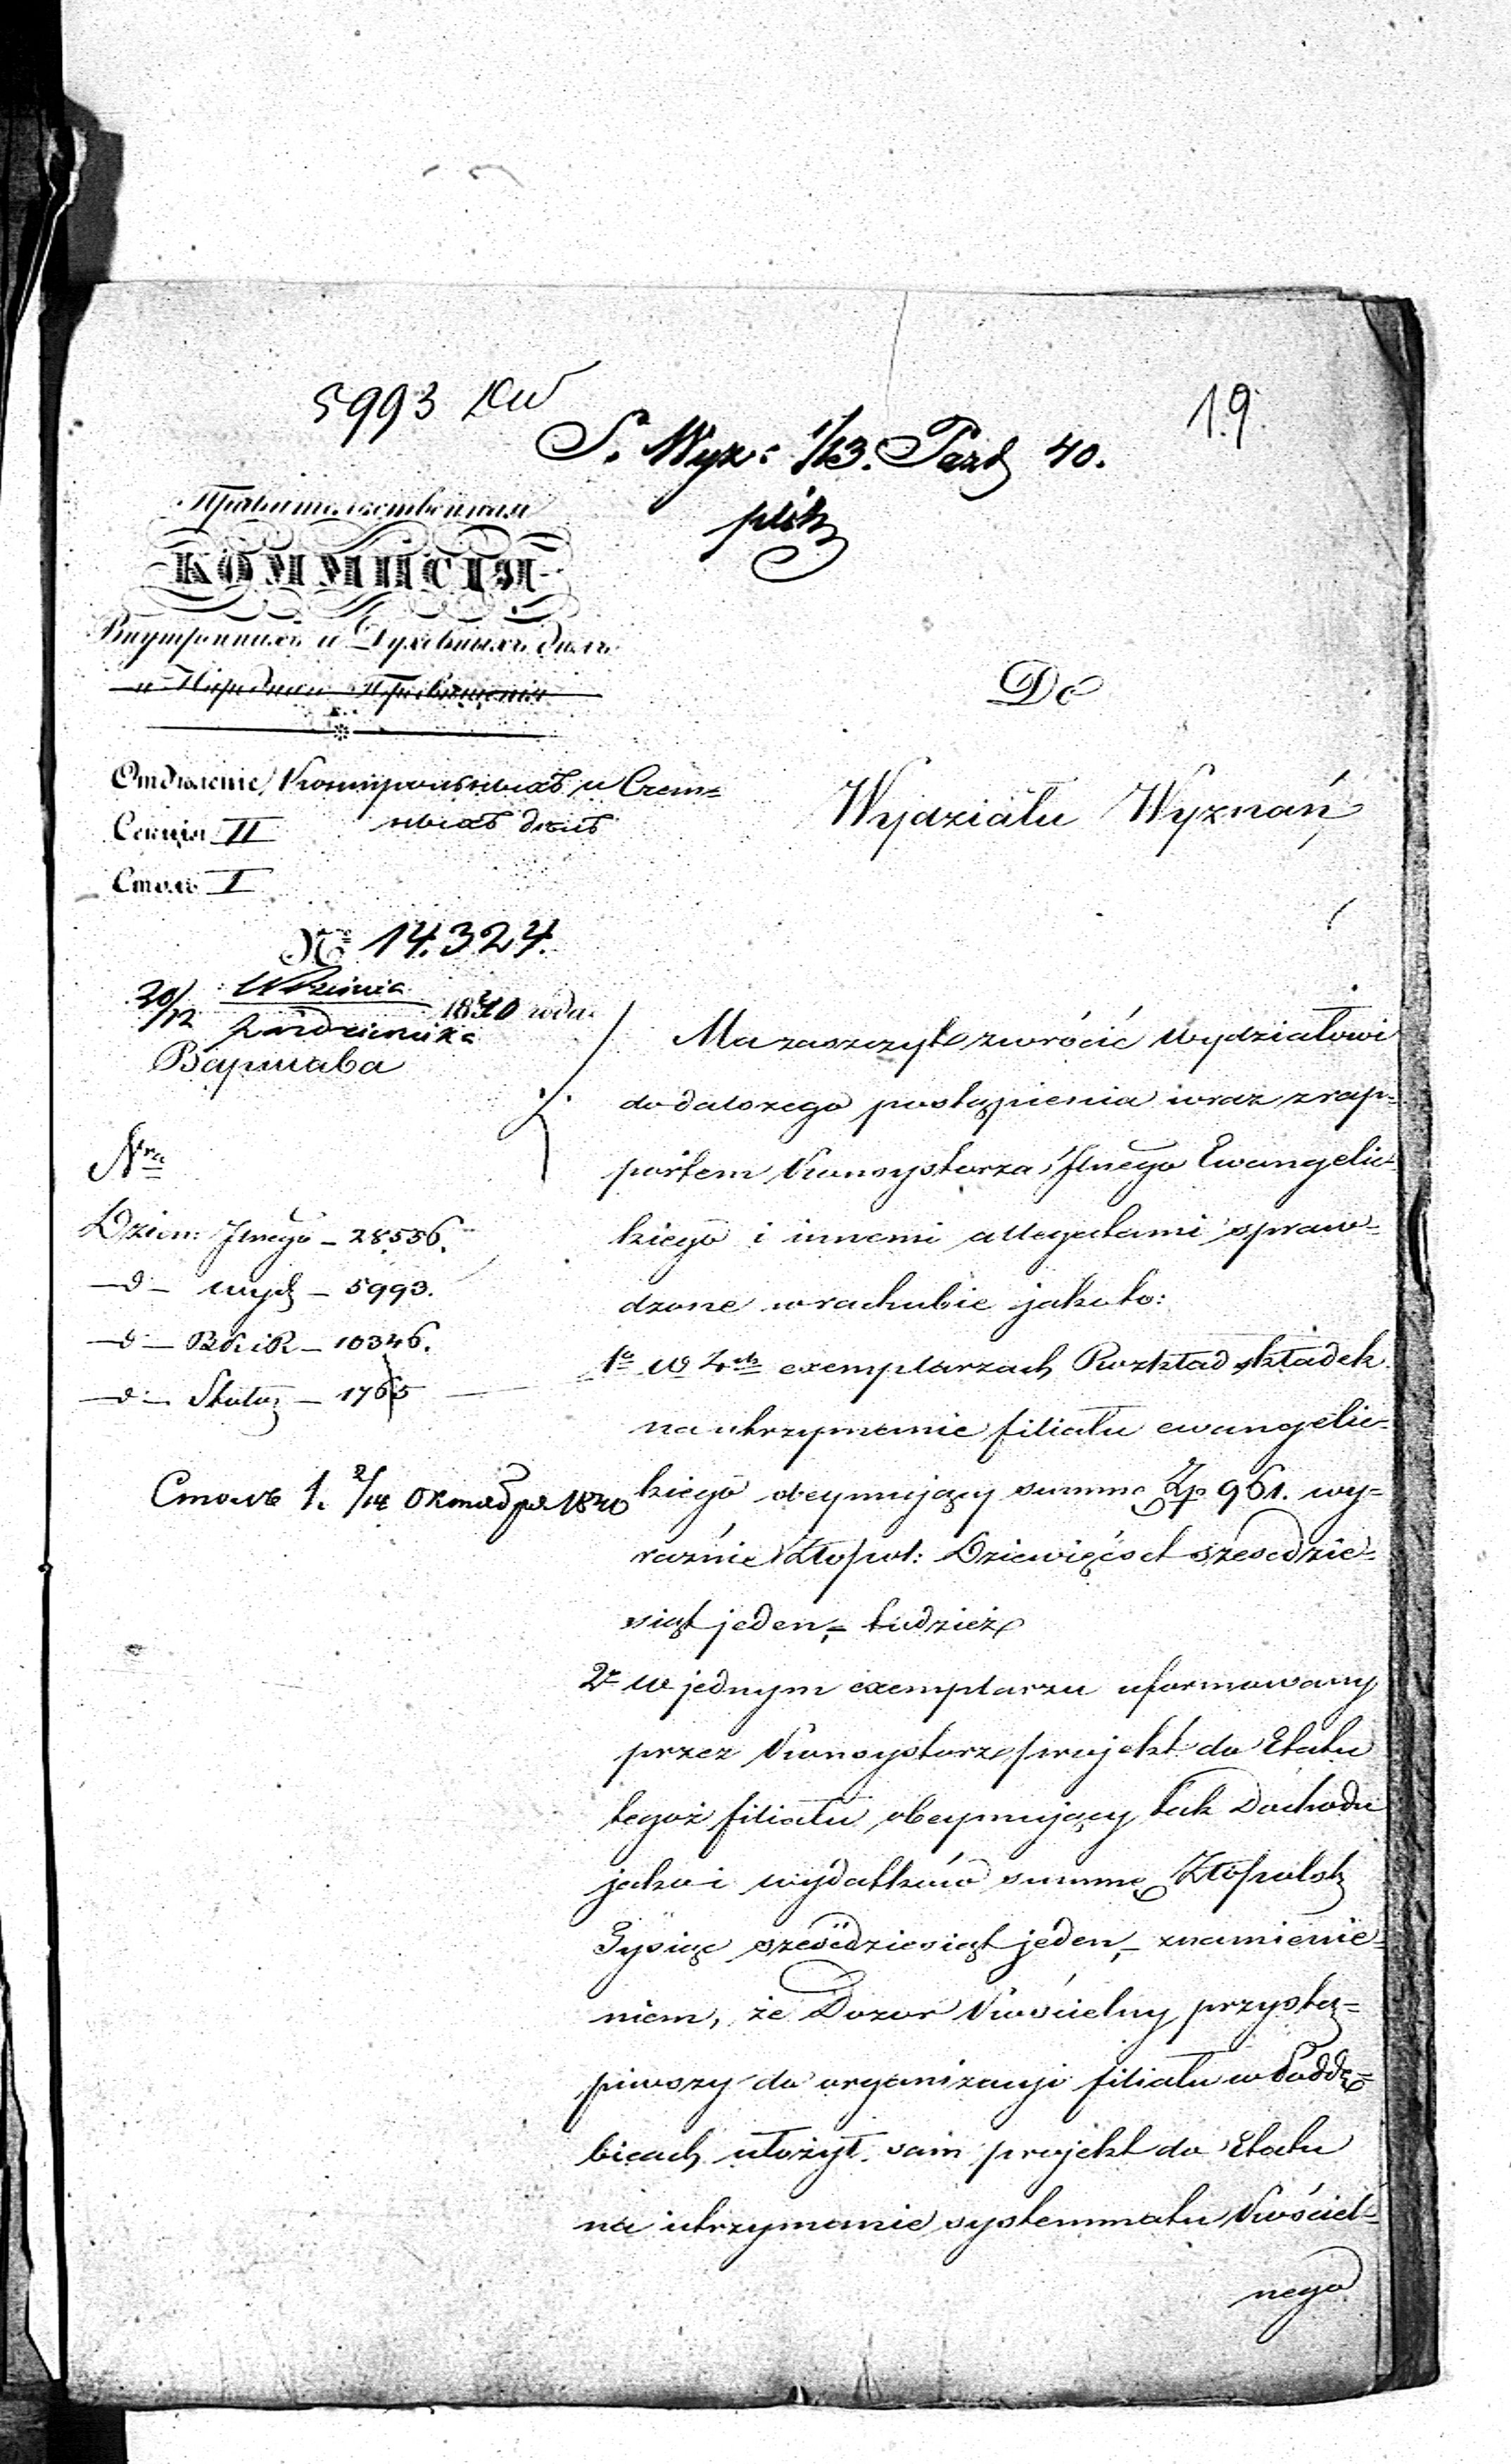 5993 KW
19.
S. Wyz: 1/13. Paźd 40.
Правительственная
КОММИСІЯ
Внутреннихъ и Духовныхъ дѣлъ
и Народнаго Просвѣщенія
Do
Отдѣленіе Контрольныхъ и Счет=
ныхъ дѣлъ
Секція II
Wydziału Wyznań
Столъ I
№ 14.324.
30/12 Września
Października 1840 года
Варшава
Nra
Dzien: Jlnego – 28556.
–d– wydz – 5993.
–d– BKiR – 10346.
–d– Skutu – 1765
Столъ 1. 2/14 Октября 1840
Ma zaszczyt zwrócić Wydziałowi
do dalszego postąpienia wraz z rap=
portem Konsystorza Jlnego Ewangelic=
kiego i innemi allegatami spraw=
dzone w rachubie jako to:
1o w 4ch exemplarzach Rozkład składek
na utrzymanie filiału ewangelic=
kiego obeymujący summę Zp 961. wy=
raźnie Złopol: Dziewięćset sześćdzie=
siąt jeden, – tudzież
2o w jednym exemplarzu uformowany
przez Konsystorz projekt do Etatu
tegoż filiału obeymujący tak Dochodu
jako i wydatków summę Złopolsk
Tysiąc sześćdziesiąt jeden, – znamienie=
niem, że Dozor Kościelny przystą=
piwszy do organizacji filiału w Poddę=
bicach ułożył sam projekt do Etatu
na utrzymanie systemmatu Kościel=
nego